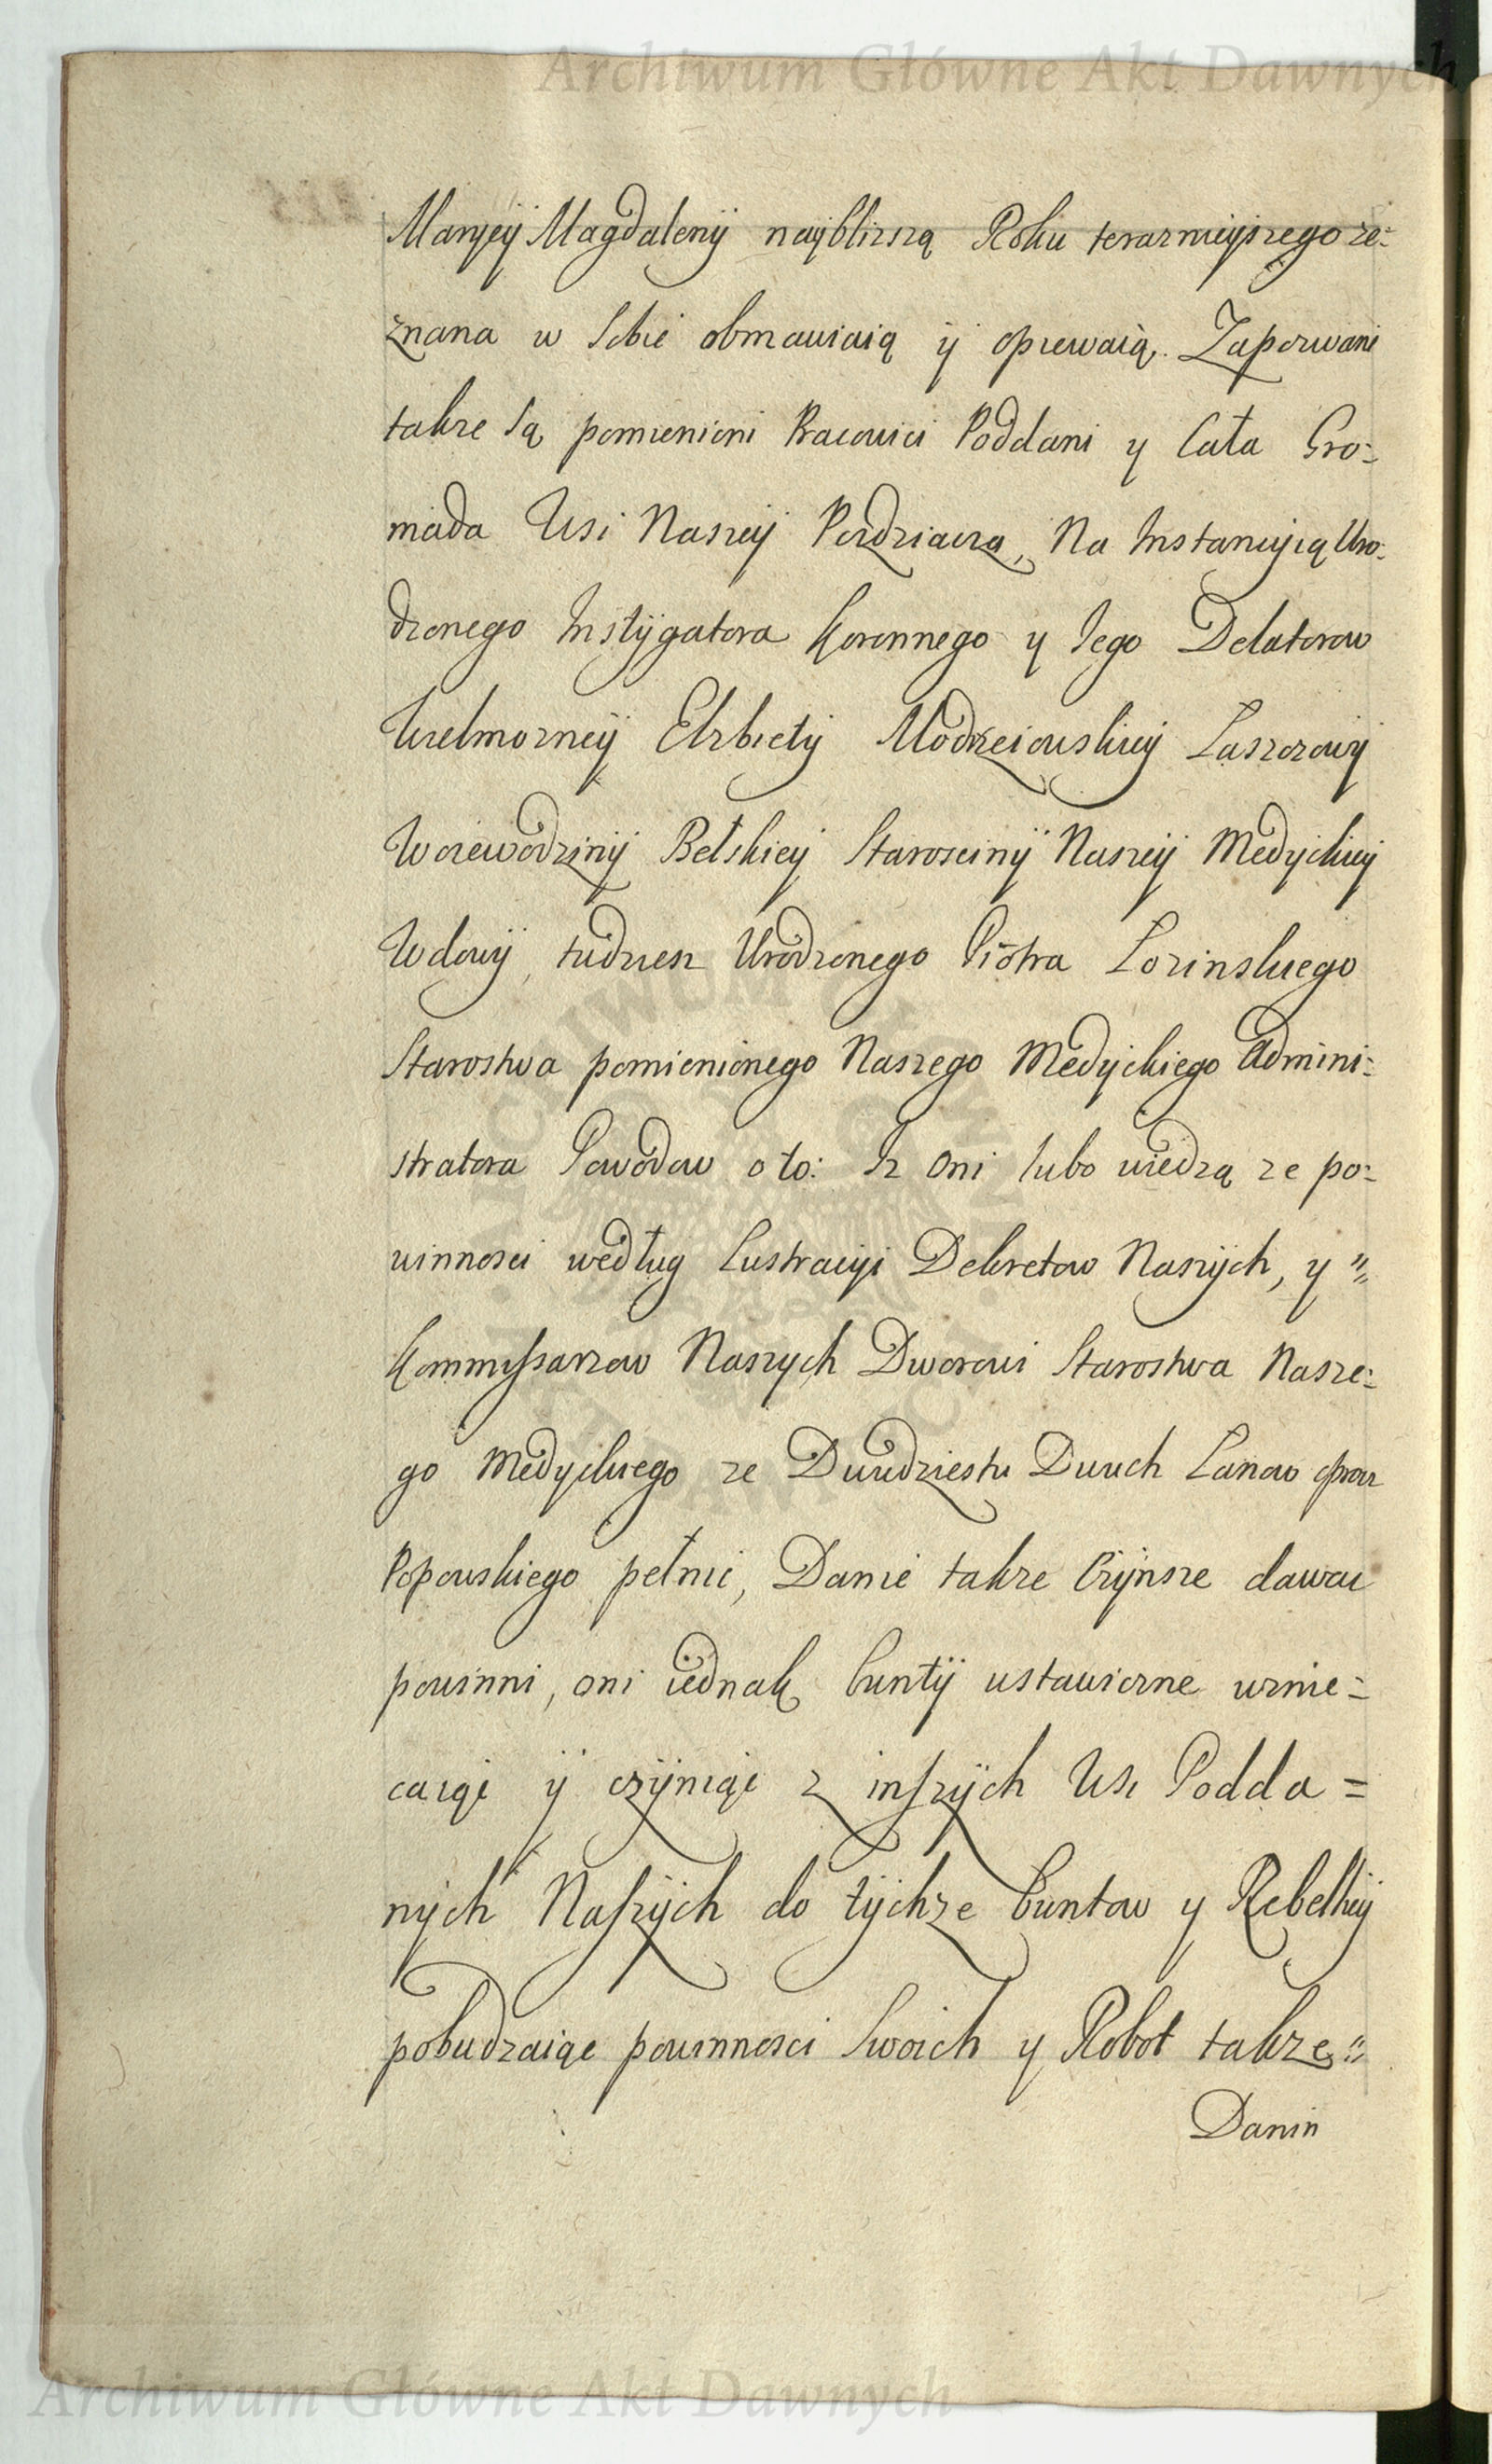 Archiwum Główne Akt Dawnych
Maryey Magdaleny nayblizszą Roku teraznieyszego ze:
znana w Sobie obmawiaią y opiewaią. Zapozwani
takze Są pomienieni Pracowici Poddani y Cała Gro:
mada Wsi Naszey Pozdziacza, Na Instancyią Uro:
dzonego Instygatora Koronnego y Jego Delatorow
Wielmozney Elzbiety Modrzeiowskiey Laszczowy
Woiewodziny Bełskiey Starosciny Naszey Medyckiey
Wdowy, tudziesz Urodzonego Piotra Lozinskiego
Starostwa pomienionego Naszego Medyckiego Admini:
stratora Powodow o to: Iz oni lubo wiedzą ze po:
winnosci według Lustracyi Dekretow Naszych, y
Kommissarzow Naszych Dworowi Starostwa Nasze:
go Medyckiego ze Dwudziestu Dwuch Łanow oprocz
Popowskiego pełnić, Danie takze Czynsze dawac
powinni, oni iednak bunty ustawiczne wznie=
caiąc y czyniąc z inszych Wsi Podda=
nych Naszych do tychze buntow y Rebelliey
pobudzaiąc powinnosci Swoich y Robot takze
Danin
Archiwum Główne Akt Dawnych